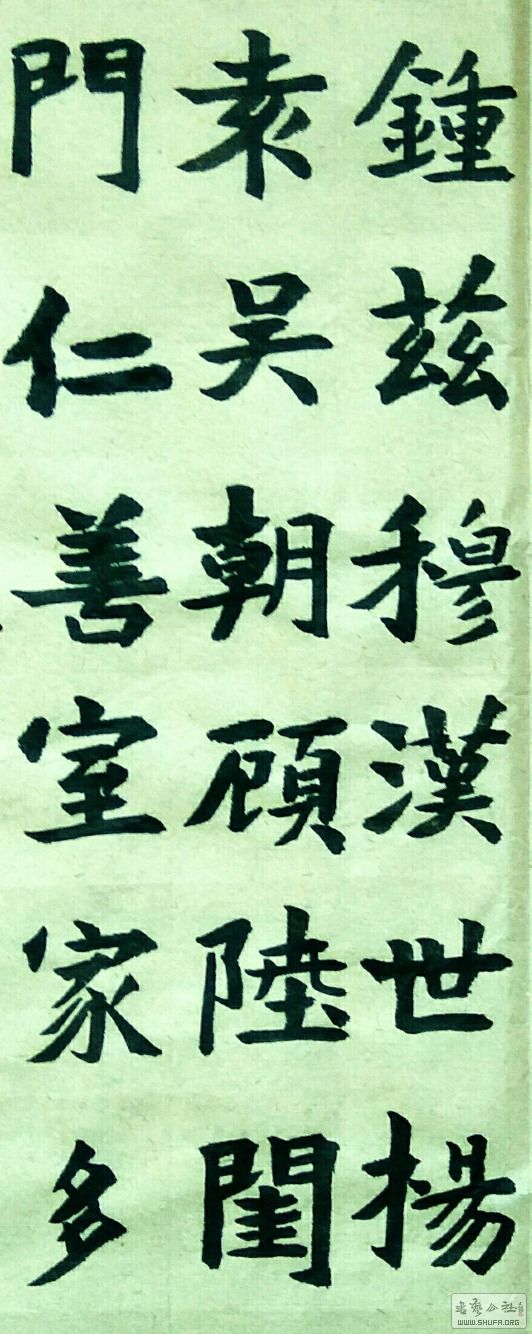 鍾茲穆漢世揚
袁吳朝顧陸閨
門仁善室家多
書藝公社
WWW.SHUFA.ORG